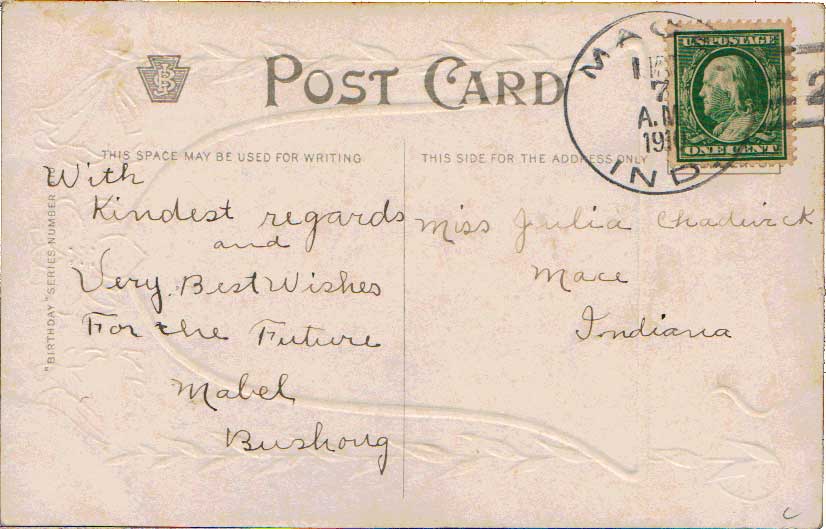 POST CARD
U.S. POSTAGE
ONE CENT
7
A.M
191
IND.
2
THIS SPACE MAY BE USED FOR WRITING
THIS SIDE FOR THE ADDRESS ONLY
"BIRTHDAY" SERIES NUMBER
With
Kindest regards
and
Very Best Wishes
For the Future
Mabel
Bushong
Miss Julia Chadwick
Mace
Indiana